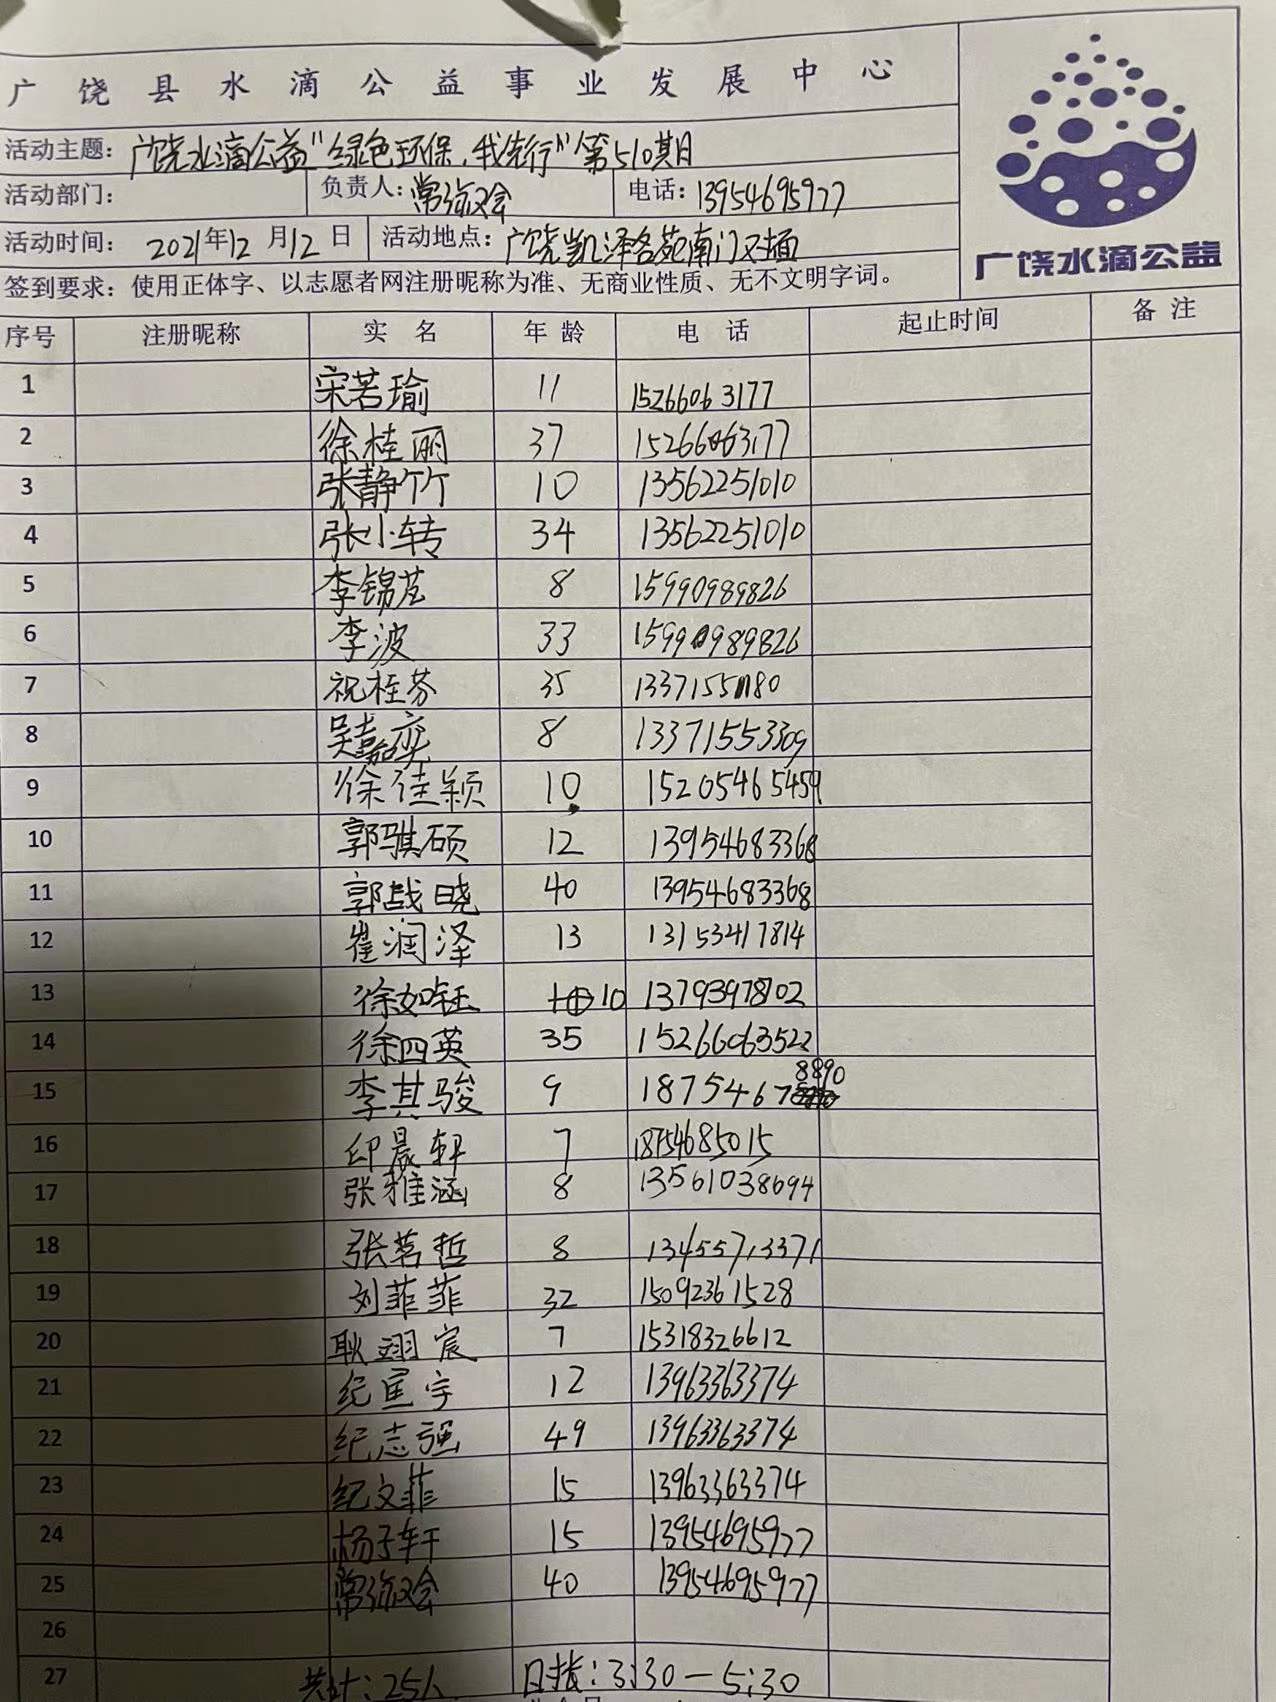 广饶县水滴公益事业发展中心
活动主题：广饶水滴公益"绿色环保，我先行"第510期日
活动部门： 负责人：常海会 电话：13954695977
活动时间：2021年12月12日 活动地点：广饶凯泽名苑南门对面
广饶水滴公益
签到要求：使用正体字、以志愿者网注册昵称为准、无商业性质、无不文明字词。
序号 注册昵称 实名 年龄 电话 起止时间 备注
1 宋若瑜 11 15266063177
2 徐桂丽 37 15266063177
3 张静竹 10 13562251010
4 张小转 34 13562251010
5 李锦茳 8 15990989826
6 李波 33 15990989826
7 祝桂芬 35 13371551180
8 吴嘉奕 8 13371553309
9 徐佳颖 10 15205465459
10 郭骐硕 12 13954683368
11 郭战晓 40 13954683368
12 崔润泽 13 13153417814
13 徐如钰 10 13793978102
14 徐四英 35 15266063522
15 李其骏 9 18754678890
16 印晨轩 7 18754685015
17 张雅涵 8 13561038694
18 张茗哲 8 13455713371
19 刘菲菲 32 15092361528
20 耿翊宸 7 15318326612
21 纪星宇 12 13963363374
22 纪志强 49 13963363374
23 纪文菲 15 13963363374
24 杨子轩 15 13954695977
25 常海会 40 13954695977
26
27 共计：25人 日接：3:30—5:30